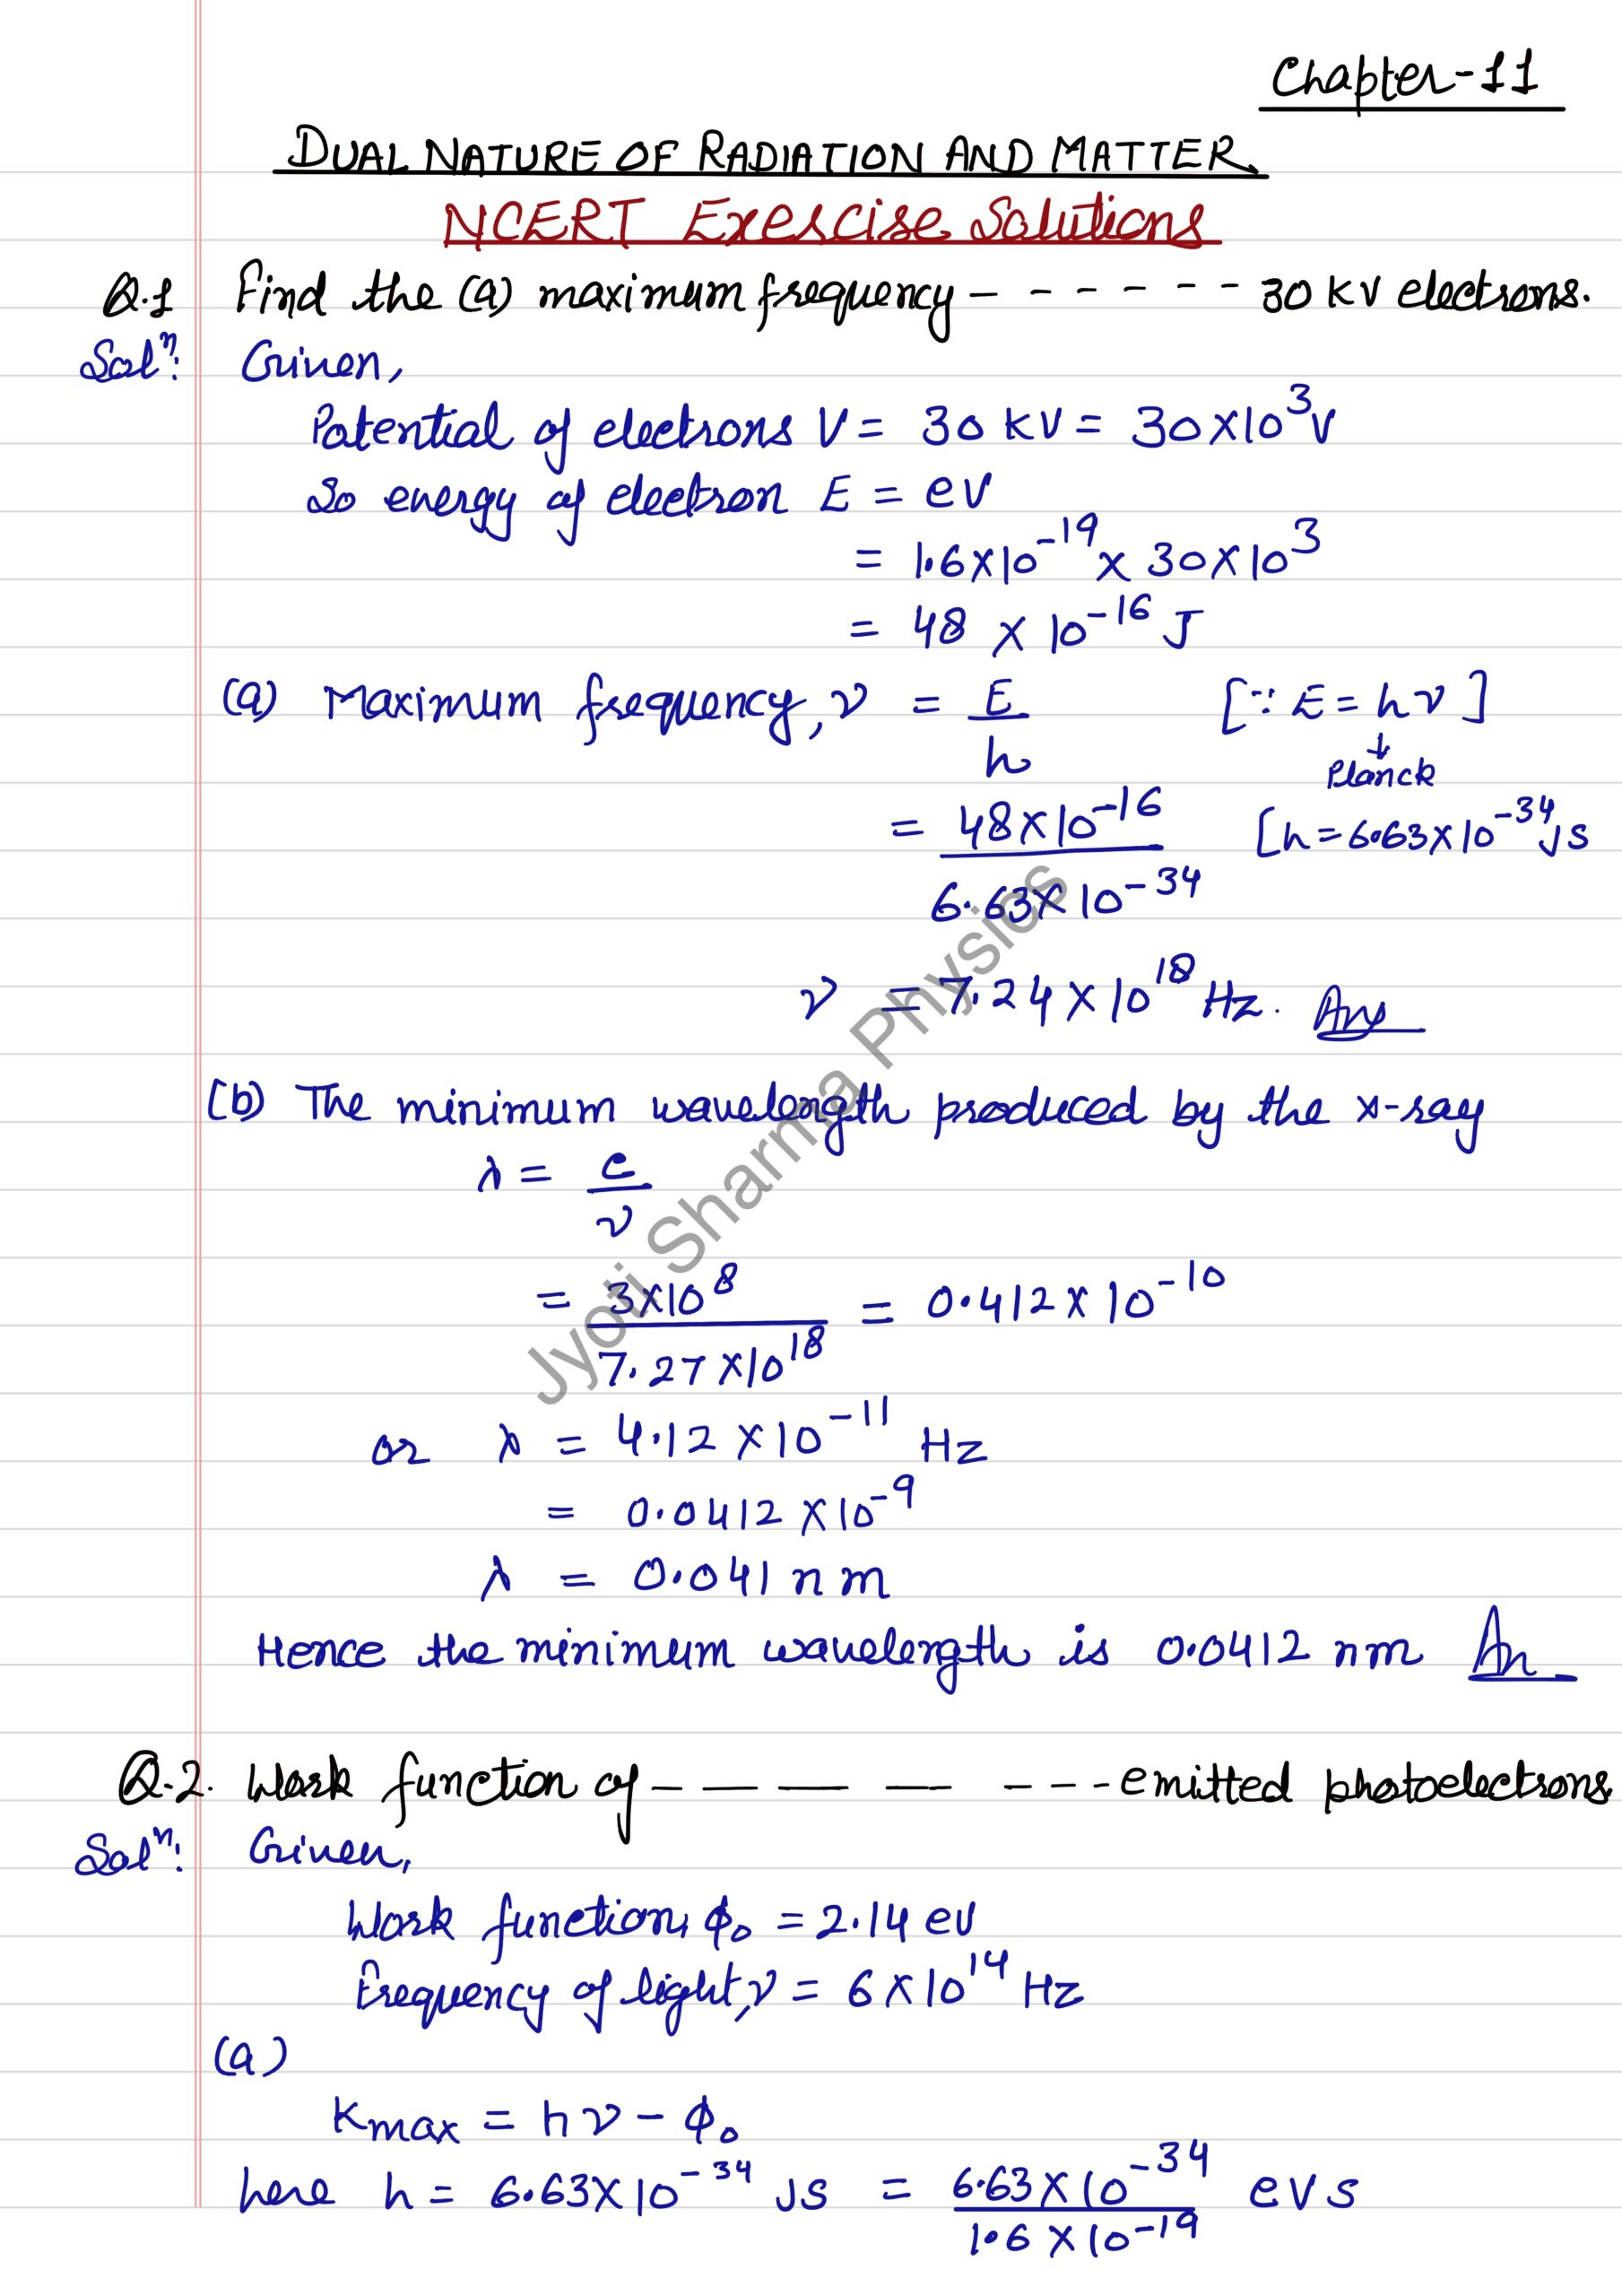 Chapter-11
DUAL NATURE OF RADIATION AND MATTER
NCERT Exercise Solutions
Q.1 Find the (a) maximum frequency - - - - - - - 30 kV electrons.
Solⁿ: Given,
Potential of electrons V = 30 kV = 30×10³V
So energy of electron E = eV
= 1.6×10⁻¹⁹ × 30×10³
= 48 × 10⁻¹⁶ J
(a) Maximum frequency, ν = E/h [∵ E = hν]
↓
Planck
= 48×10⁻¹⁶ / 6.63×10⁻³⁴ [h = 6.63×10⁻³⁴ Js
ν = 7.24×10¹⁸ Hz. Ans
(b) The minimum wavelength produced by the x-ray
λ = c/ν
= 3×10⁸ / 7.27×10¹⁸ = 0.412×10⁻¹⁰
or λ = 4.12×10⁻¹¹ Hz
= 0.0412×10⁻⁹
λ = 0.041 nm
Hence the minimum wavelength is 0.0412 nm An
Q.2. Work function of - - - - - - - emitted photoelectrons.
Solⁿ: Given,
Work function, ϕ₀ = 2.14 eV
Frequency of light, ν = 6×10¹⁴ Hz
(a)
Kmax = hν - ϕ₀
here h = 6.63×10⁻³⁴ Js = 6.63×10⁻³⁴ / 1.6×10⁻¹⁹ eVs
Jyoti Sharma Physics